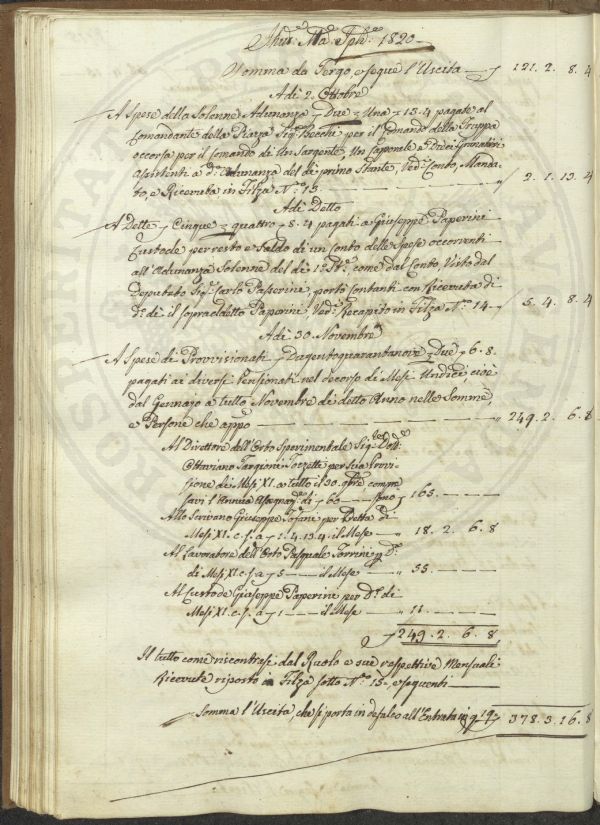 1820
Somma da Tergo, e segue l'Uscita 121. 2. 8. 4
Adì 2. Ottobre
A Spese della Solenne Adunanza Due Una 13.4 pagate al
Comandante della Piazza Sig.r Bechi per il Comando della Truppa
occorsa per il comando di Un Sargente, Un Caporale e Dieci Granatieri
Assistenti a d.a Adunanza del dì primo Stante, Ved.i Conto, Manda-
to, e Ricevuta in Filza N.o 13 2. 1. 13. 4
Adì Detto
A Dette Cinque quattro 8.4 pagati a Giuseppe Paperini
Custode per resto e Saldo di un Conto delle Spese occorrenti
all'Adunanza Solenne del dì 1.o St.e, come dal Conto, Visto dal
Deputato Sig.r Carlo Passerini, portò Contanti con Ricevuta di
D.o dì il sopraddetto Paperini, Ved.i Recapito in Filza N.o 14 5. 4. 8. 4
Adì 30. Novembre
A Spese di Provvisionati Dugentoquarantanove Due 6. 8.
pagati ai diversi Pensionati nel decorso di Mesi Undici, cioè
dal Gennajo a tutto Novembre di detto Anno nelle Somme,
e Persone che appo 249. 2. 6. 8
Al Direttore dell'Orto Sperimentale Sig.r Dott.
Ottaviano Targioni Tozzetti per sua Provi-
sione di Mesi XI. a tutto il 30. 9bre compre
savi l'Annua di 60 sono 165.
Allo Scrivano Giuseppe Tofani per Detta di
Mesi XI. c.s. a 1. 4. 13. 4 il Mese 18. 2. 6. 8
Al Lavoratore dell'Orto Pasquale Torrini p D.a
di Mesi XI. c.s. a 5 il Mese 55.
Al Custode Giuseppe Paperini per D.a di
Mesi XI. c.s. a 1 il Mese 11.
249. 2. 6. 8
Il tutto come riscontrasi dal Ruolo e sue respettive Mensuali
Ricevute riposto in Filza sotto N.o 15, e seguenti
Somma l'Uscita, che si porta in defalco all'Entrata 378. 3. 16. 8